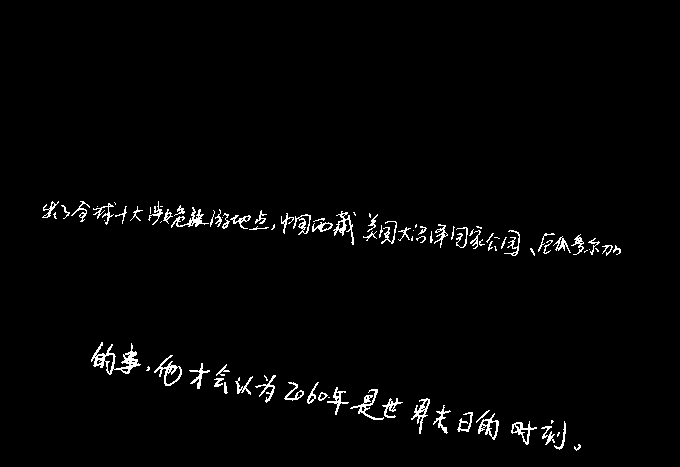 出了全球十大涉危旅游地点,中国西藏 美国大沼泽国家公园、厄瓜多尔加
的事,他才会认为2060年是世界末日的时刻。